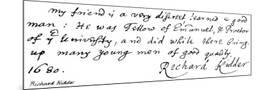 my friend is a very discreet learned & good
man: He was Fellow of Emanuel, & Proctor
of ye University, and did while there bring
up many young men of good quality.
1680. Richard Kidder
Richard Kidder